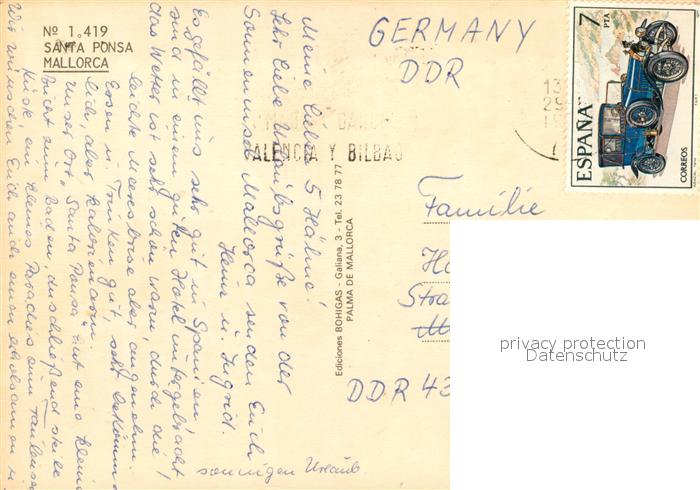 Nº 1.419
SANTA PONSA
MALLORCA
Meine lieben 5 Hähne!
Sehr liebe Urlaubsgrüße von der
Sonneninsel Mallorca senden Euch
Heinz u. Ingrid.
Es gefällt uns sehr gut in Spanien
sind in einem guten Hotel untergebracht
das Wetter ist sehr schön warm, durch die
leichte Meeresbrise aber angenehm.
Essen u. Trinken gut, sehr bekömm-
lich, aber kalorienarm.
Unser Ort "Santa Ponsa" hat eine kleine
Bucht zum Baden, anschließend steile
Küste, ein kleines Paradies zum Faulenzen
Wir wünschen Euch auch erholsamen u.
sonnigen Urlaub
Ediciones BOHIGAS - Galiana, 3 - Tel. 23 78 77
PALMA DE MALLORCA
GERMANY
DDR
ALENCIA Y BILBAO
7
PTA
ESPAÑA
CORREOS
Familie
Stra
DDR 43
privacy protection
Datenschutz